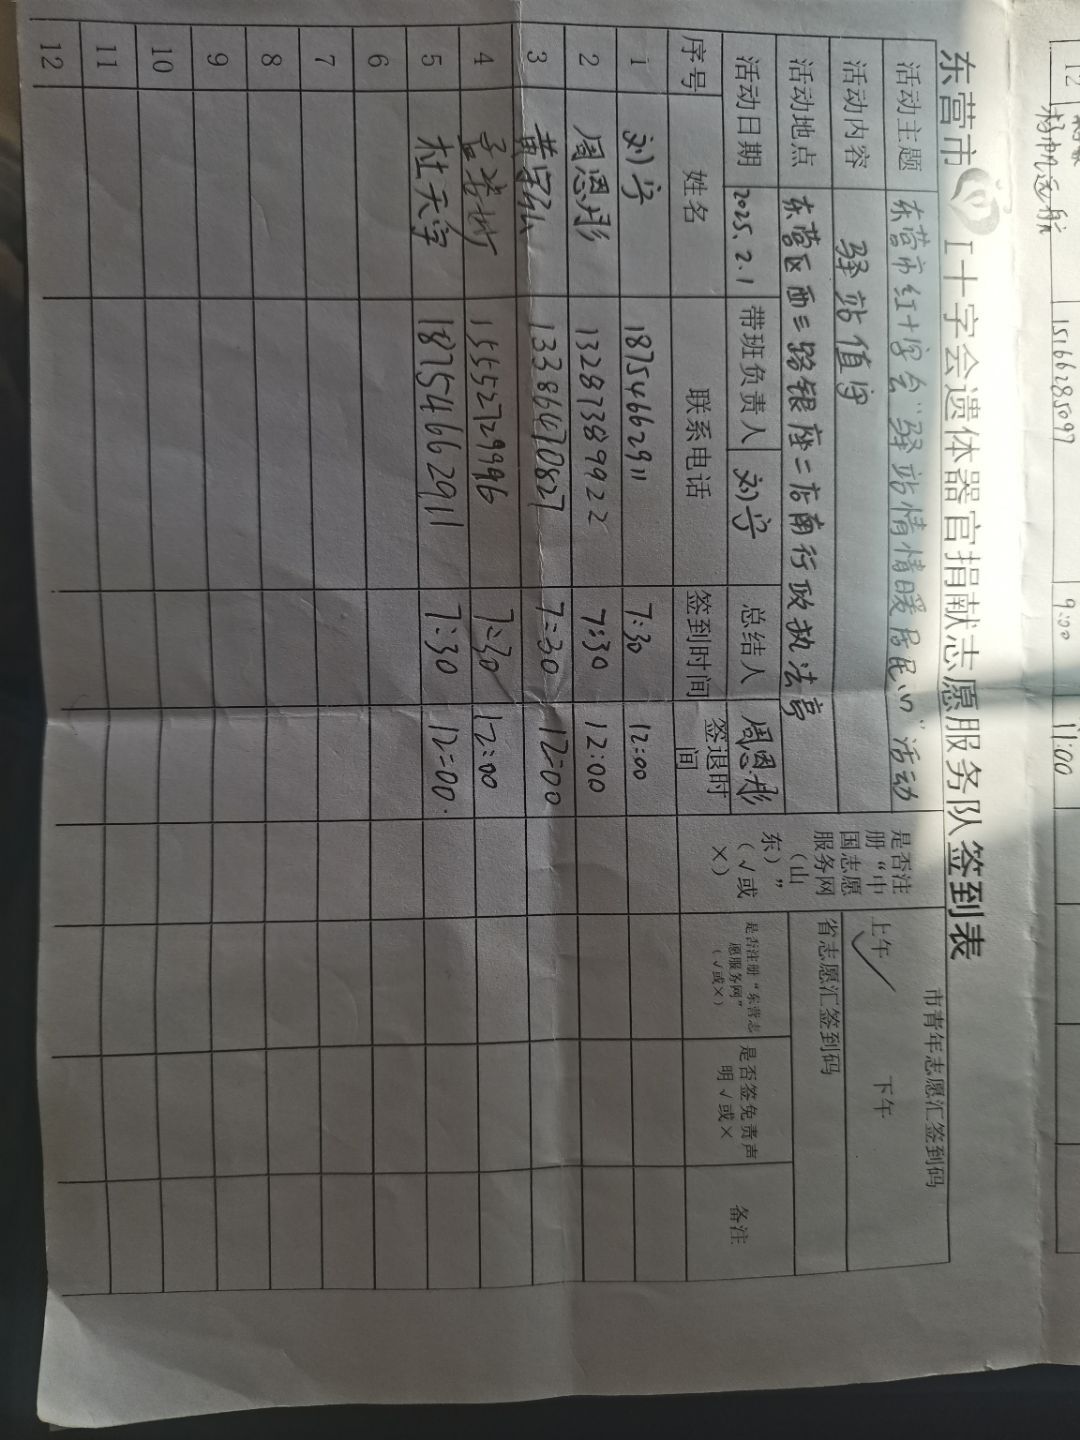 12
杨帆远航 15166285097 9:00 11:00
东营市红十字会遗体器官捐献志愿服务队签到表
活动主题 东营市红十字会"驿站情情暖居民心"活动
市青年志愿汇签到码
活动内容 驿站值守
上午✓ 下午
活动地点 东营区西三路银座二店南行政执法亭
省志愿汇签到码
活动日期 2025.2.1 带班负责人 刘宁 总结人 周恩彤
序号 姓名 联系电话 签到时间 签退时间 是否注册“中国志愿服务网（山东）”（√或×） 是否注册“东营志愿服务网”（√或×） 是否签免责声明√或× 备注
1 刘宁 18754662911 7:30 12:00
2 周恩彤 13287389922 7:30 12:00
3 13386670827 7:30 12:00
4 15552729996 7:30 12:00
5 杜天宇 18754662911 7:30 12:00.
6
7
8
9
10
11
12